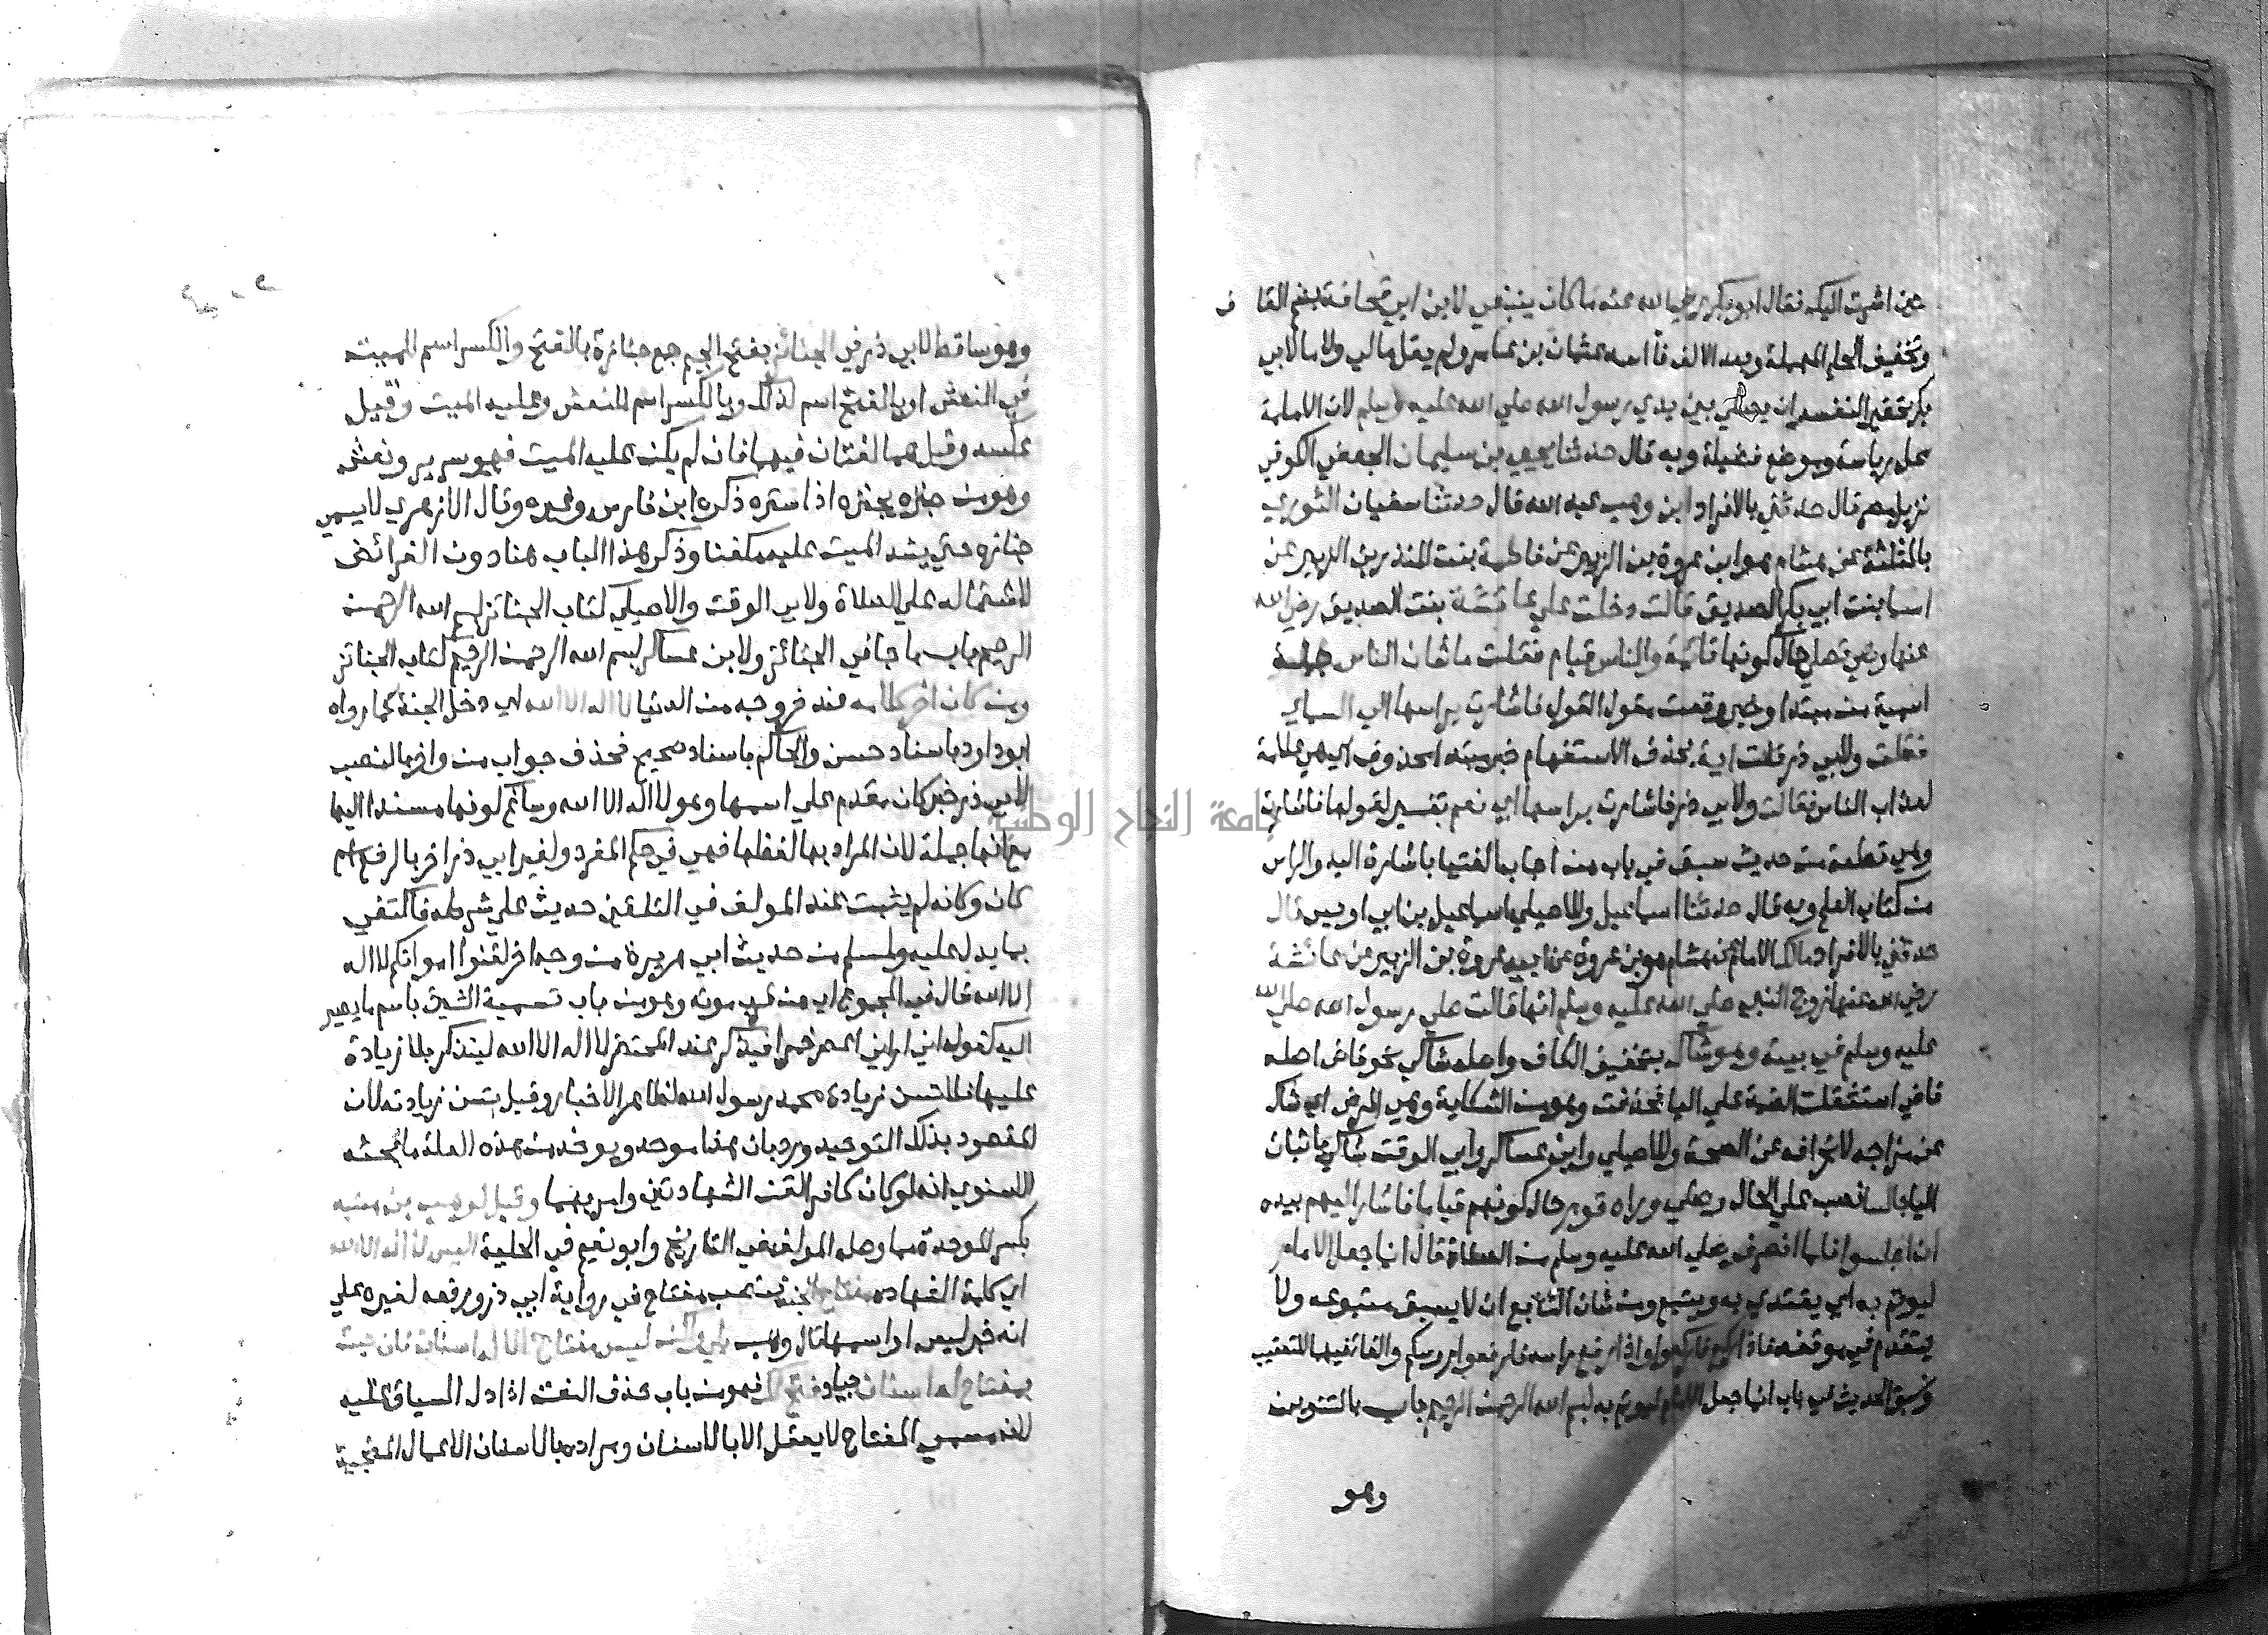 حين اشرت اليك فقال ابو بكر رضي الله عنه ما كان ينبغي لابن ابي قحافة بضم القاف
وتخفيف الحاء المهملة وبعد الالف فاء اسمه عثمان بن عامر ولم يقل مالي ولا ما لابي
بكر تحقيرا لنفسه ان يصلي بين يدي رسول الله صلي الله عليه وسلم لان الامامة
محل رياسة وموضع فضيلة وبه قال حدثنا يحيى بن سليمان الجعفي الكوفي
نزيل مصر قال حدثني بالافراد ابن وهب عبد الله قال حدثنا سفيان الثوري
بالمثلثة عن هشام هو ابن عروة بن الزبير عن فاطمة بنت المنذر بن الزبير عن
اسما بنت ابي بكر الصديق قالت دخلت علي عائشة بنت الصديق رضي الله
عنها وهي تصلي حال كونها قائمة والناس قيام فقلت ما شان الناس جملة
اسمية من مبتدا وخبر وقعت مقول القول فاشارت براسها الي السماء
فقلت ولابي ذر قلت اية بحذف الاستفهام خبر مبتدا محذوف اي هي علامة
لعذاب الناس فقالت ولابي ذر فاشارت براسها اي نعم تفسير لقولها فاشارت
وهي قطعة من حديث سبق في باب من اجاب الفتيا باشارة اليد والراس
من كتاب العلم وبه قال حدثنا اسماعيل وللاصيلي اسماعيل بن ابي اويس قال
حدثني بالافراد مالك الامام عن هشام هو بن عروة عن ابيه عروة بن الزبير عن عائشة
رضي الله عنها زوج النبي صلي الله عليه وسلم انها قالت صلي رسول الله صلي الله
عليه وسلم في بيته وهو شاك بتخفيف الكاف واصله شاكي نحو قاض اصله
قاضي استثقلت الضمة علي اليا فحذفت وهو من الشكاية وهي المرض اي شاك
عن مزاجه لانحرافه عن الصحة وللاصيلي وابن عساكر وابي الوقت شاكي باثبات
اليا جالسا نصب علي الحال وصلي وراه قوم حال كونهم قياما فاشار اليهم بيده
ان اجلسوا فلما انصرف صلي الله عليه وسلم من الصلاة قال انما جعل الامام
ليوتم به اي يقتدي به ويتبع ومن شان التابع ان لا يسبق متبوعه ولا
يتقدم في موقفه فاذا ركع فاركعوا واذا رفع راسه فارفعوا روسكم والفا فيهما للتعقيب
وسبق الحديث في باب انما جعل الامام ليوتم به بسم الله الرحمن الرحيم باب بالتنوين
وهو
وهو ساقط لابي ذر في الجنائز بفتح الجيم جمع جنازة بالفتح والكسر اسم للميت
في النعش او بالفتح اسم لذلك وبالكسر اسم للنعش وعليه الميت وقيل
عكسه وقيل هما لغتان فيهما فان لم يكن عليه الميت فهو سرير ونعش
وهو من جنزه يجنزه اذا ستره ذكره ابن فارس وغيره وقال الازهري لا يسمى
جنازه حتي يشد الميت عليه مكفنا وذكر هذا الباب هنا دون الفرائض
لاشتماله علي الصلاة ولابي الوقت والاصيلي كتاب الجنائز بسم الله الرحمن
الرحيم باب ما جا في الجنائز ولابن عساكر بسم الله الرحمن الرحيم كتاب الجنائز
ومن كان اخر كلامه عند خروجه من الدنيا لا اله الا الله اي دخل الجنة كما رواه
ابو داود باسناد حسن والحاكم باسناد صحيح فحذف جواب من واخر بالنصب
لابي ذر خبر كان مقدم علي اسمها وهو لا اله الا الله وساغ كونها مسندا اليها
مع انها جملة لان المراد بها لفظها فهي في حكم المفرد ولغير ابي ذر اخر بالرفع اسم
كان وكانه لم يثبت عند المولف في التلقين حديث علي شرطه فاكتفي
بما يدل عليه ولمسلم من حديث ابي هريرة من وجه اخر لقنوا امواتكم لا اله
الا الله قال في المجموع اي من قرب موته وهو من باب تسمية الشيئ باسم ما يصير
اليه كقوله اني اراني اعصر خمرا فيذكر عند المحتضر لا اله الا الله ليتذكر بلا زيادة
عليها فلا تسن زيادة محمد رسول الله لظاهر الاخبار وقيل تسن زيادته لان
المقصود بذلك التوحيد ورد بان هذا موحد ويوخذ من هذه العلة ما بحثه
الاسنوي انه لو كان كافرا لقن الشهادتين وامر بهما وقيل لوهب بن منبه
بكسر الموحدة مما وصله المولف في التاريخ وابو نعيم في الحلية اليس لا اله الا الله
اي كلمة الشهاده مفتاح الجنه بنصب مفتاح في رواية ابي ذر ورفعه لغيره علي
انه خبر ليس او اسمها قال وهب بلي ولكن ليس مفتاح الا له اسنان فان جيت
بمفتاح له اسنان جياد فتح لك فهو من باب حذف النعت اذا دل السياق عليه
لان مسمي المفتاح لا يعقل الا بالاسنان ومراده بالاسنان الاعمال المنجية
جامعة النجاح الوطنية